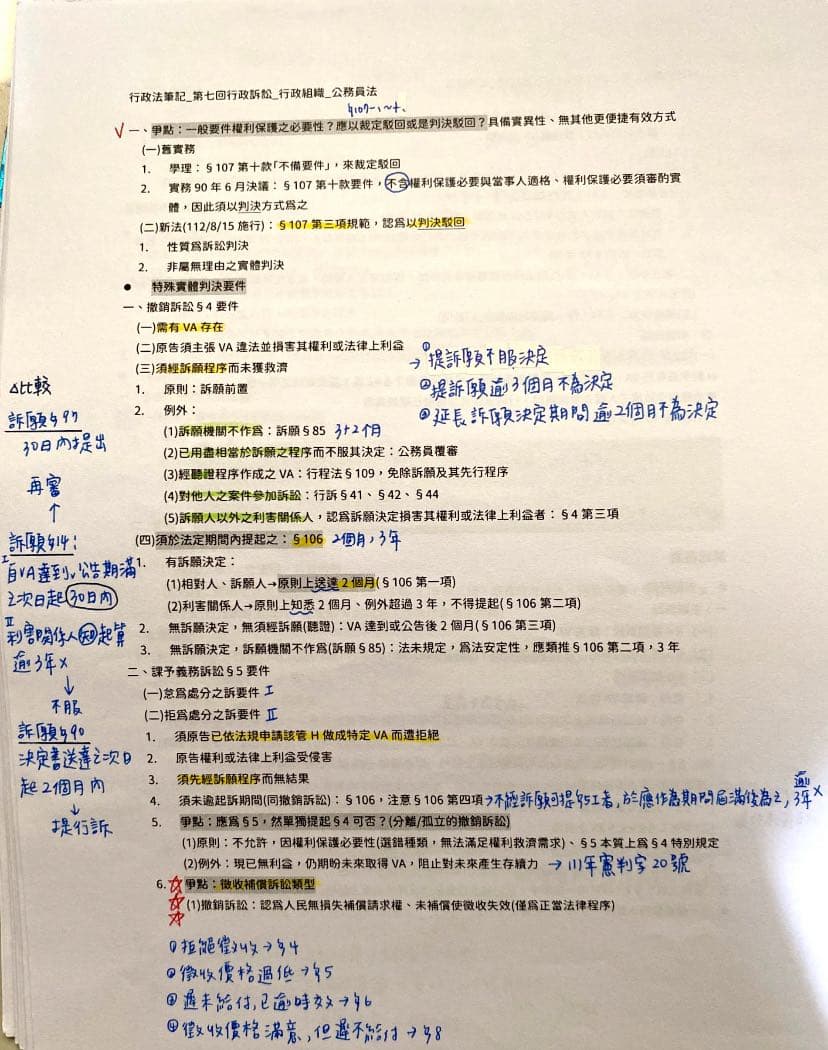 行政法筆記_第七回行政訴訟_行政組織_公務員法
§107-1~+.
√ 一、爭點：一般要件權利保護之必要性？應以裁定駁回或是判決駁回？具備實異性、無其他更便捷有效方式
(一)舊實務
1. 學理：§107 第十款「不備要件」，來裁定駁回
2. 實務 90 年 6 月決議：§107 第十款要件，不含權利保護必要與當事人適格、權利保護必要須審酌實
體，因此須以判決方式為之
(二)新法(112/8/15 施行)：§107 第三項規範，認為以判決駁回
1. 性質為訴訟判決
2. 非屬無理由之實體判決
● 特殊實體判決要件
一、撤銷訴訟§4 要件
(一)需有 VA 存在
(二)原告須主張 VA 違法並損害其權利或法律上利益
(三)須經訴願程序而未獲救濟
→ ①提訴願不服決定
②提訴願逾3個月不為決定
③延長訴願決定期間逾2個月不為決定
1. 原則：訴願前置
2. 例外：
(1)訴願機關不作為：訴願§85 3+2個月
(2)已用盡相當於訴願之程序而不服其決定：公務員覆審
(3)經聽證程序作成之 VA：行程法§109，免除訴願及其先行程序
(4)對他人之案件參加訴訟：行訴§41、§42、§44
(5)訴願人以外之利害關係人，認為訴願決定損害其權利或法律上利益者：§4 第三項
(四)須於法定期間內提起之：§106 2個月,3年
1. 有訴願決定：
(1)相對人、訴願人→原則上送達 2 個月(§106 第一項)
(2)利害關係人→原則上知悉 2 個月、例外超過 3 年，不得提起(§106 第二項)
2. 無訴願決定，無須經訴願(聽證)：VA 達到或公告後 2 個月(§106 第三項)
3. 無訴願決定，訴願機關不作為(訴願§85)：法未規定，為法安定性，應類推§106 第二項，3 年
二、課予義務訴訟§5 要件
(一)怠為處分之訴要件 I
(二)拒為處分之訴要件 II
1. 須原告已依法規申請該管 H 做成特定 VA 而遭拒絕
2. 原告權利或法律上利益受侵害
3. 須先經訴願程序而無結果
4. 須未逾起訴期間(同撤銷訴訟)：§106，注意§106 第四項→不經訴願可提§5I者,於應作為期間屆滿後為之,逾3年×
5. 爭點：應為§5，然單獨提起§4 可否？(分離/孤立的撤銷訴訟)
(1)原則：不允許，因權利保護必要性(選錯種類，無法滿足權利救濟需求)、§5 本質上為§4 特別規定
(2)例外：現已無利益，仍期盼未來取得 VA，阻止對未來產生存續力 → 111年憲判字20號
6. ☆ 爭點：徵收補償訴訟類型
☆ (1)撤銷訴訟：認為人民無損失補償請求權、未補償使徵收失效(僅為正當法律程序)
☆
①拒絕徵收→§4
②徵收價格過低→§5
③遲未給付,已逾時效→§6
④徵收價格滿意,但遲不給付→§8
△比較
訴願§97
30日內提出
再審
↑
訴願§14:
I 自VA達到v公告期滿
之次日起30日內
II 利害關係人知起算
逾3年×
↓
不服
訴願§90
決定書送達之次日
起2個月內
↓
提行訴